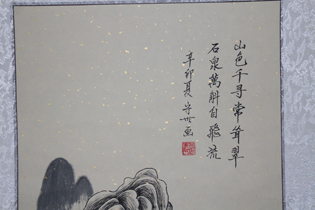 山色千寻常耸翠
石泉萬斛自飛流
辛卯夏守世画